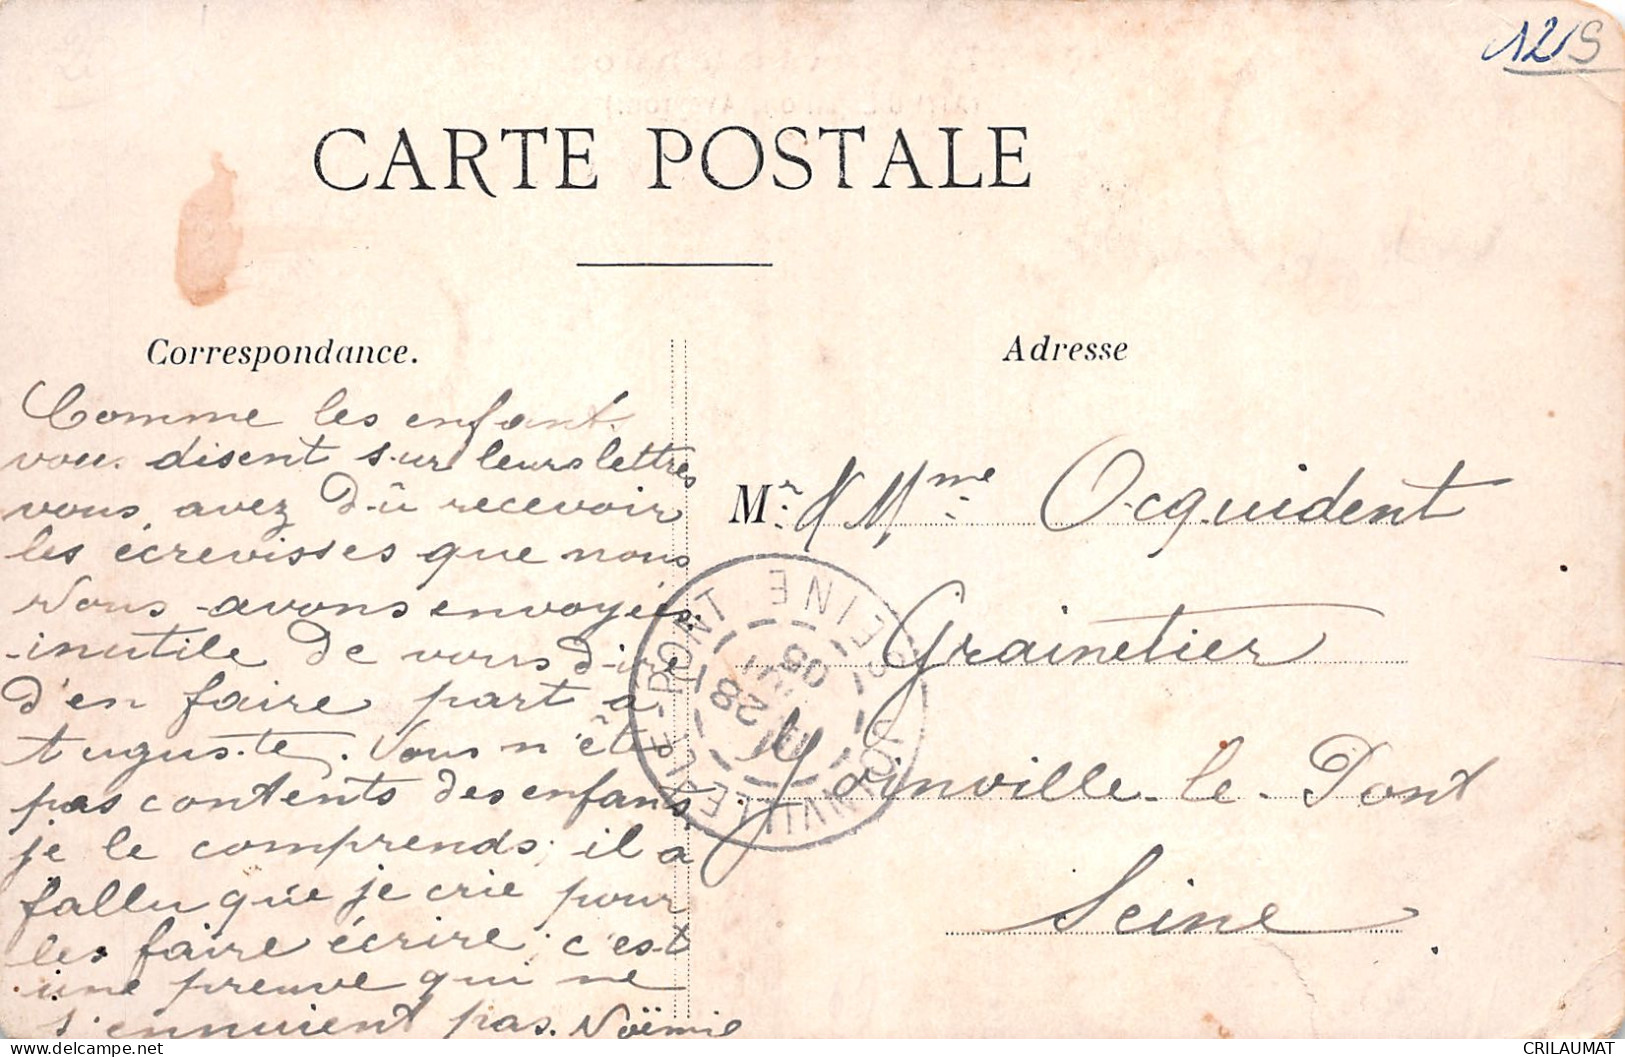 129
CARTE POSTALE
Correspondance.
Adresse
Comme les enfants
vous disent sur leurs lettres
vous avez dû recevoir
les écrevisses que nous
Nous avons envoyées.
inutile de vous dire
d'en faire part à
Auguste. Vous n'êtes
pas contents des enfants,
je le comprends; il a
fallu que je crie pour
les faire écrire; c'est
une preuve qui ne
s'ennuient pas. Noëmie
Mr & Mme Ocquident
Grainetier
Joinville-le-Pont
Seine.
JOINVILLE-LE-PONT SEINE
28
CRILAUMAT